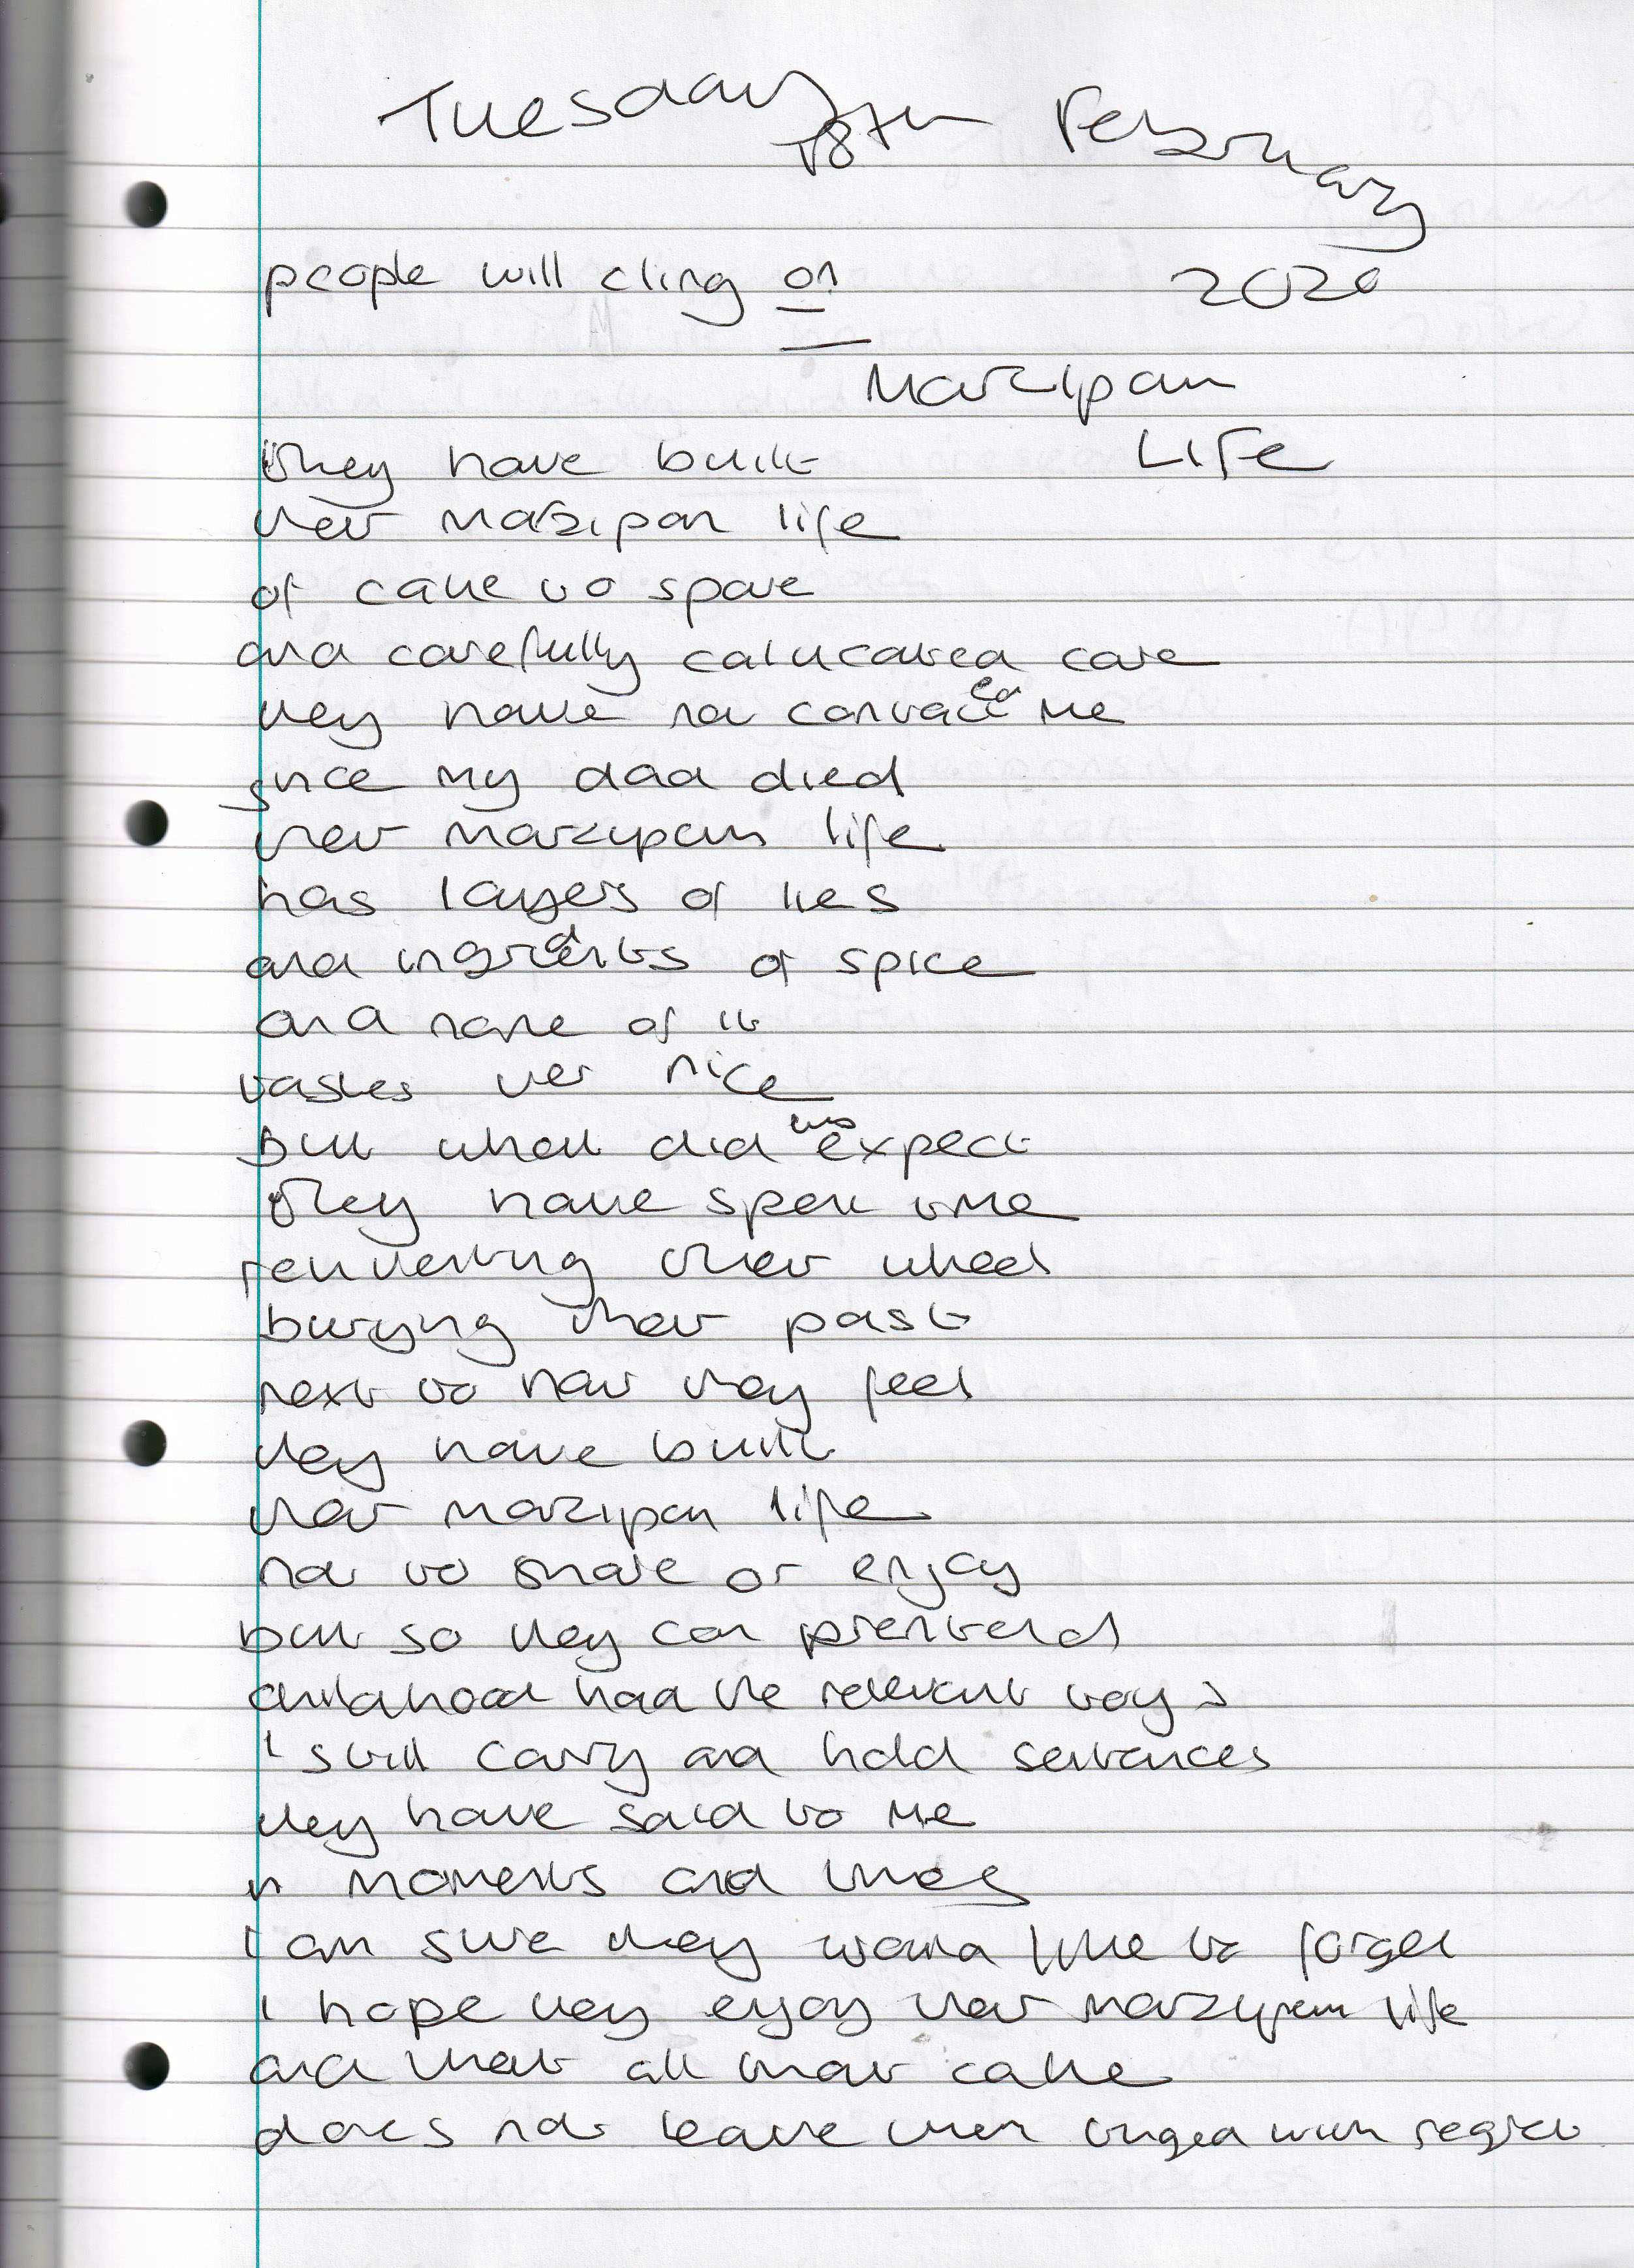 Tuesday 18th February
people will cling on 2020
Marzipan
Life
They have built
their marzipan life
of cake to spare
and carefully calucated care
they have not contacted me
since my dad died
their marzipan life
has layers of lies
and ingredents of spice
and none of it
tastes very nice
but what did we expect
They have spent time
reinventing their wheel
burying their past
next to how they feel
they have built
their marzipan life
not to share or enjoy
but so they can prentend
childhood had the relevant toys
I still carry and hold sentences
they have said to me
in moments and times
I am sure they would like to forget
I hope they enjoy their marzipan life
and that all that cake
does not leave them tinged with regret